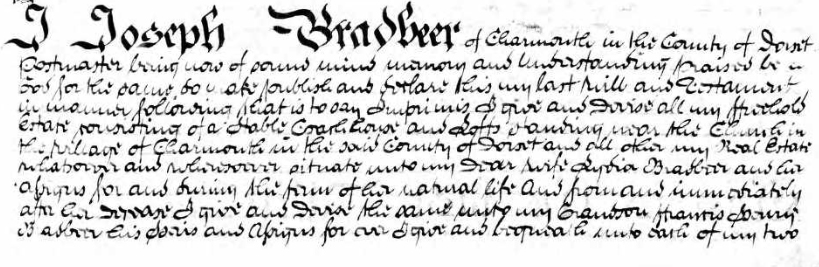 I Joseph Bradbeer of Charmouth in the County of Dorset
Postmaster being now of sound mind memory and Understanding praised be
God for the same do make publish and declare this my last Will and Testament
in manner following that is to say Imprimis I give and devise all my ffreehold
Estate consisting of a Stable Coach house and Lofts standing near the Church in
the Village of Charmouth in the said County of Dorset and all other my Real Estate
whatsoever and wheresoever situate unto my Dear Wife Lydia Bradbeer and her
Assigns for and during the term of her natural life And from and immediately
after her decease I give and devise the same unto my Grandson ffrancis
Bradbeer his Heirs and Assigns for ever I give and bequeath unto each of my two